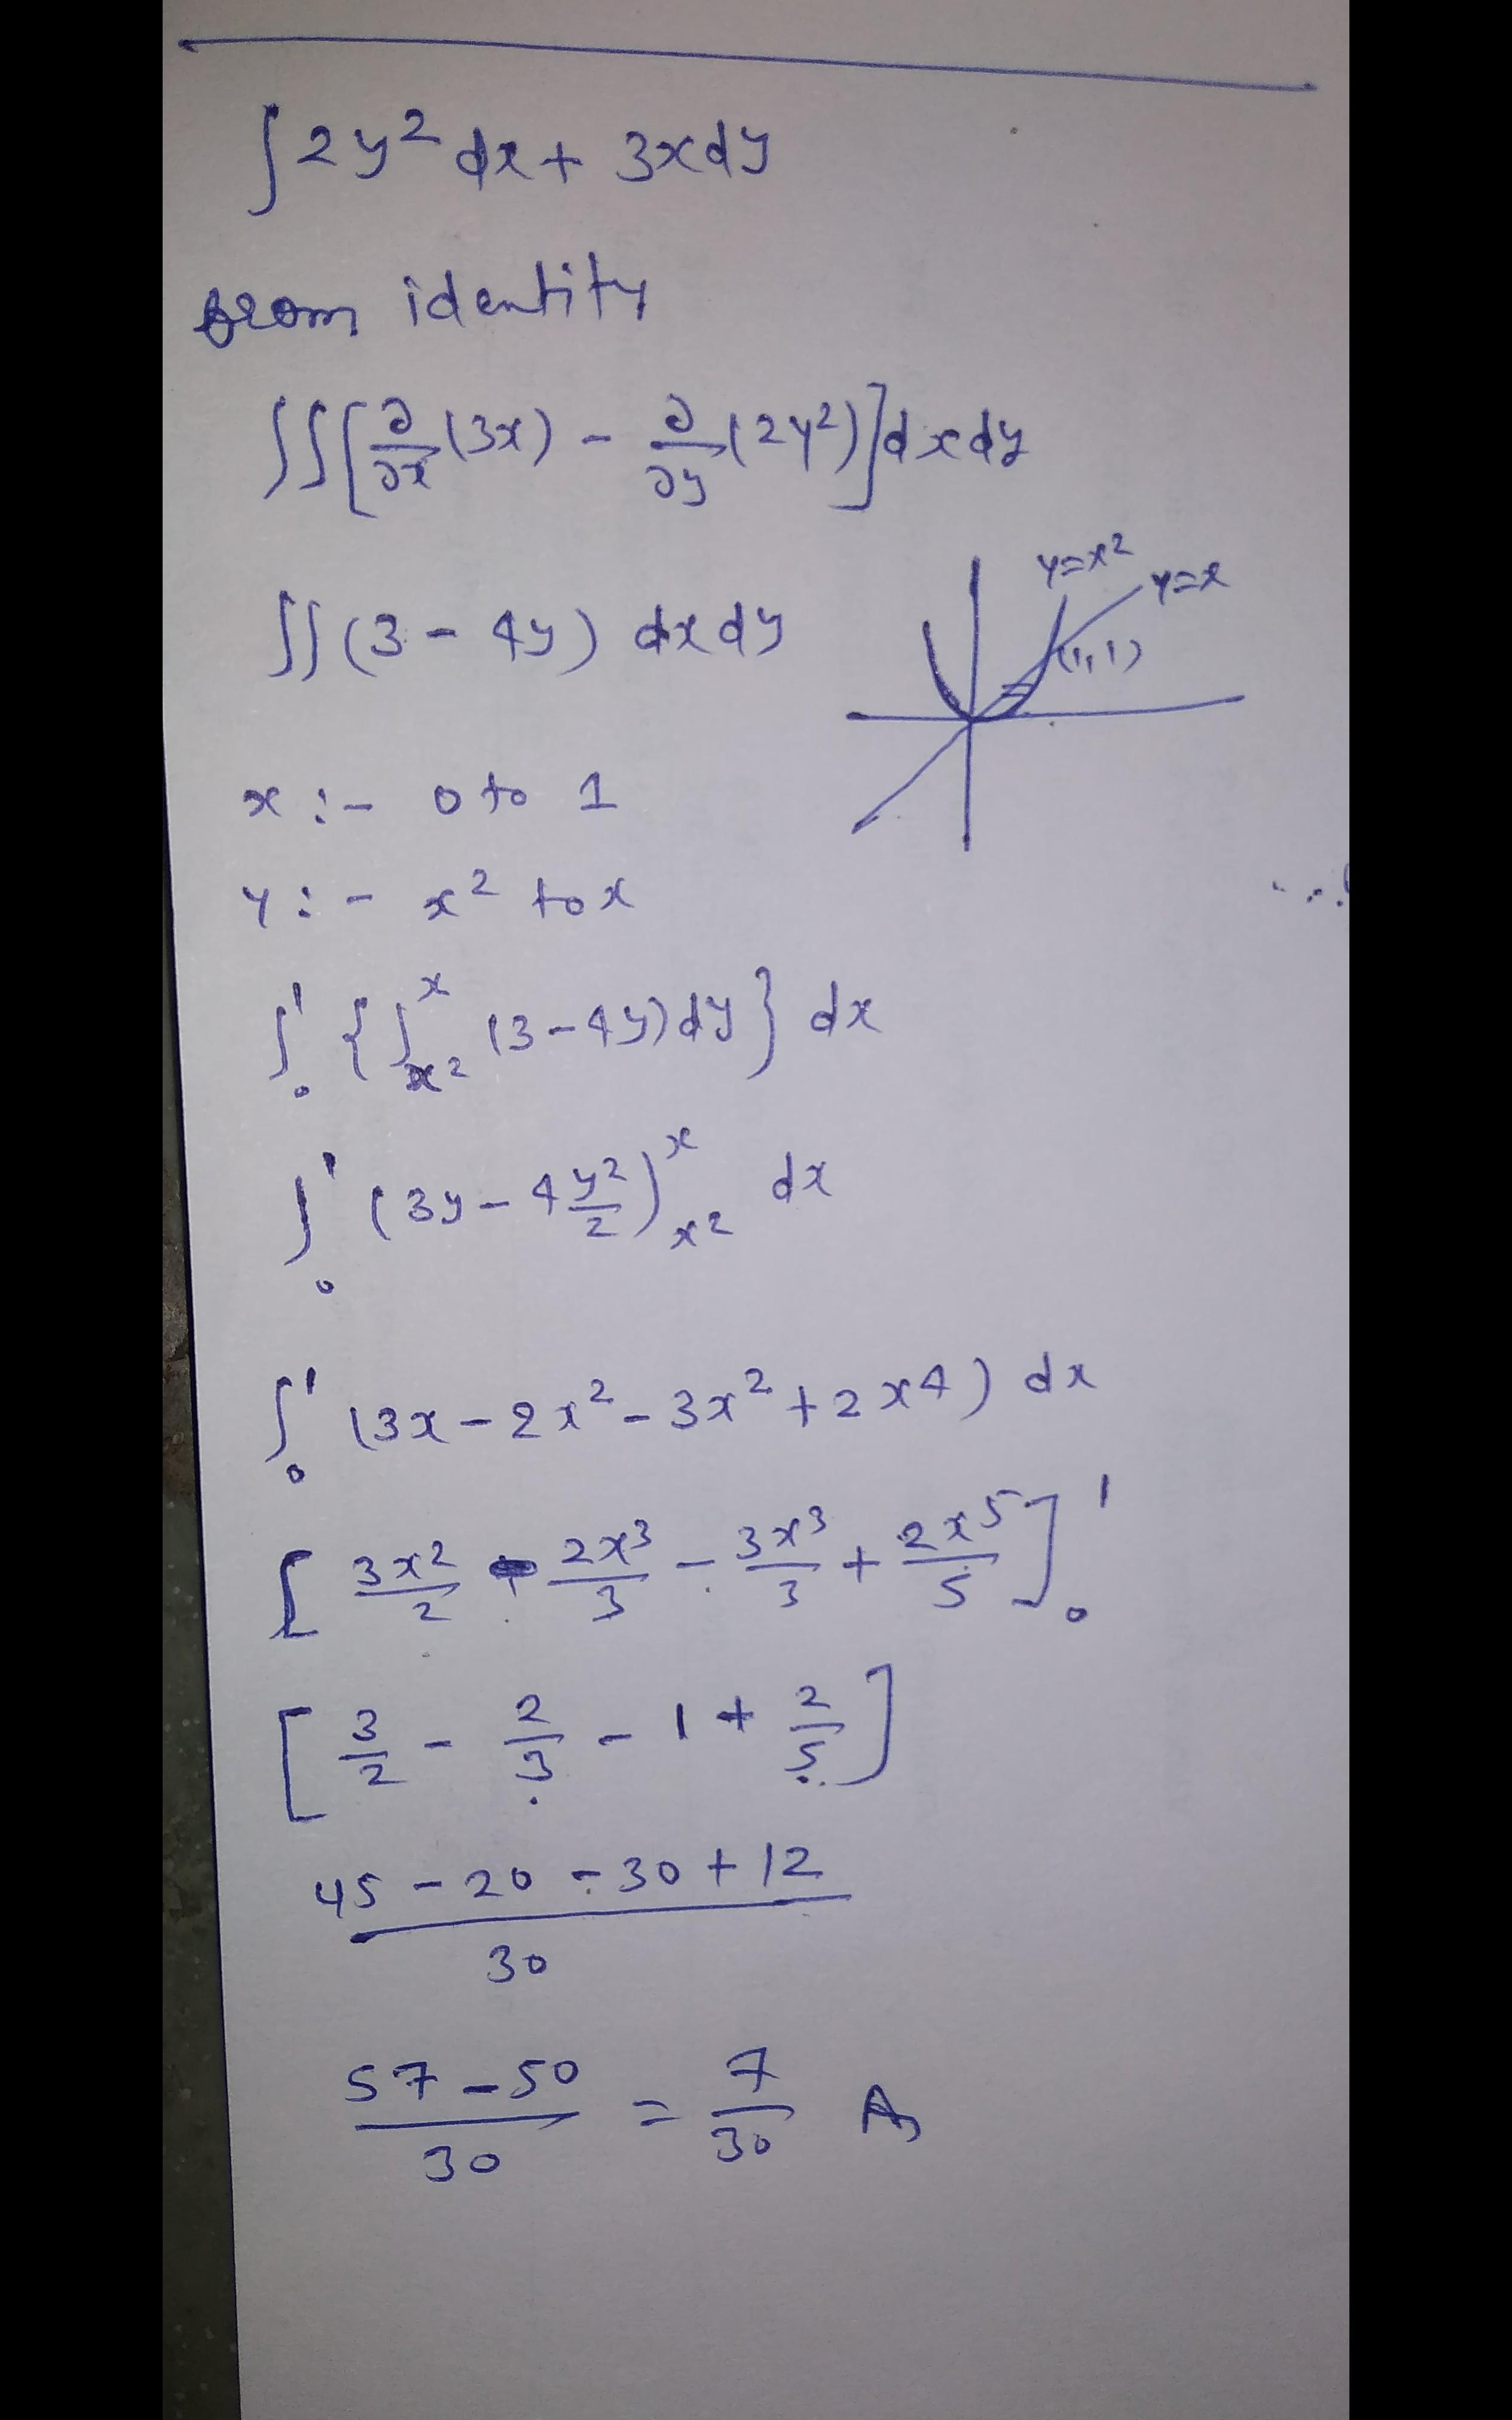 ∫2y² dx + 3xdy
from identity
∫∫[∂/∂x (3x) - ∂/∂y (2y²)]dxdy
∫∫(3 - 4y) dxdy
y=x²
y=x
(1,1)
x :- 0 to 1
y :- x² to x
∫₀¹ {∫_{x²}^{x} (3-4y)dy} dx
∫₀¹ (3y - 4 y²/2)_{x²}^{x} dx
∫₀¹ (3x - 2x² - 3x² + 2x⁴) dx
[3x²/2 - 2x³/3 - 3x³/3 + 2x⁵/5]₀¹
[3/2 - 2/3 - 1 + 2/5]
45 - 20 - 30 + 12
30
57 - 50 / 30 = 7/30